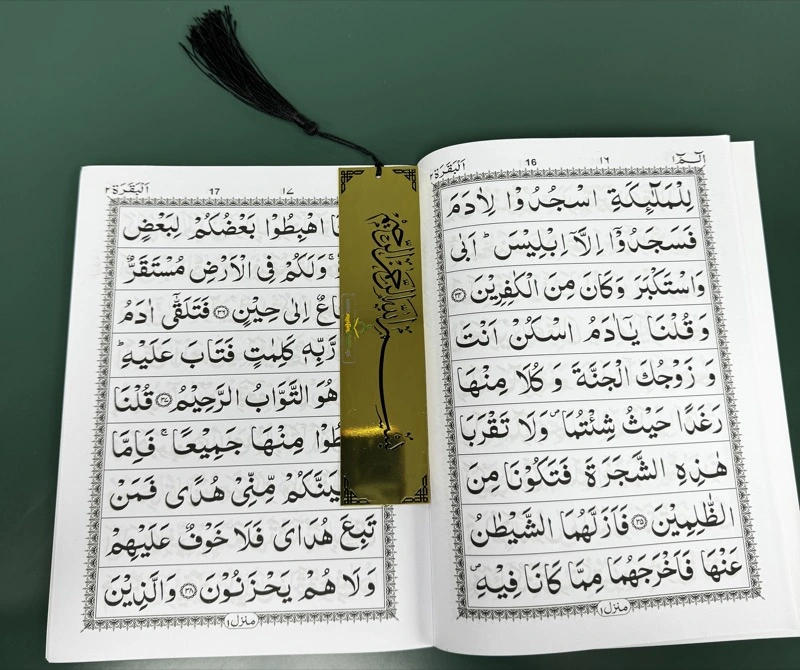 الٓـمّٓ ١ ١٦ 16 اَلْبَقَرَة ٢
لِلْمَلٰٓئِكَةِ اسْجُدُوْا لِاٰدَمَ
فَسَجَدُوْٓا اِلَّآ اِبْلِيْسَ ؕ اَبٰى
وَاسْتَكْبَرَ وَكَانَ مِنَ الْكٰفِرِيْنَ ۝۳۴
وَ قُلْنَا يٰٓاٰدَمُ اسْكُنْ اَنْتَ
وَ زَوْجُكَ الْجَنَّةَ وَ كُلَا مِنْهَا
رَغَدًا حَيْثُ شِئْتُمَا ۪ وَلَا تَقْرَبَا
هٰذِهِ الشَّجَرَةَ فَتَكُوْنَا مِنَ
الظّٰلِمِيْنَ ۝۳۵ فَاَزَلَّهُمَا الشَّيْطٰنُ
عَنْهَا فَاَخْرَجَهُمَا مِمَّا كَانَا فِيْهِ ۪
منزل ١
بسم الله الرحمن الرحيم
١٧ 17 اَلْبَقَرَة ٢
اهْبِطُوْا بَعْضُكُمْ لِبَعْضٍ
وَلَكُمْ فِى الْاَرْضِ مُسْتَقَرٌّ
اِلٰى حِيْنٍ ۝۳۶ فَتَلَقّٰٓى اٰدَمُ
رَّبِّهٖ كَلِمٰتٍ فَتَابَ عَلَيْهِ ؕ
هُوَ التَّوَّابُ الرَّحِيْمُ ۝۳۷ قُلْنَا
مِنْهَا جَمِيْعًا ۚ فَاِمَّا
مِّنِّىْ هُدًى فَمَنْ
تَبِعَ هُدَاىَ فَلَا خَوْفٌ عَلَيْهِمْ
وَلَا هُمْ يَحْزَنُوْنَ ۝۳۸ وَالَّذِيْنَ
منزل ١